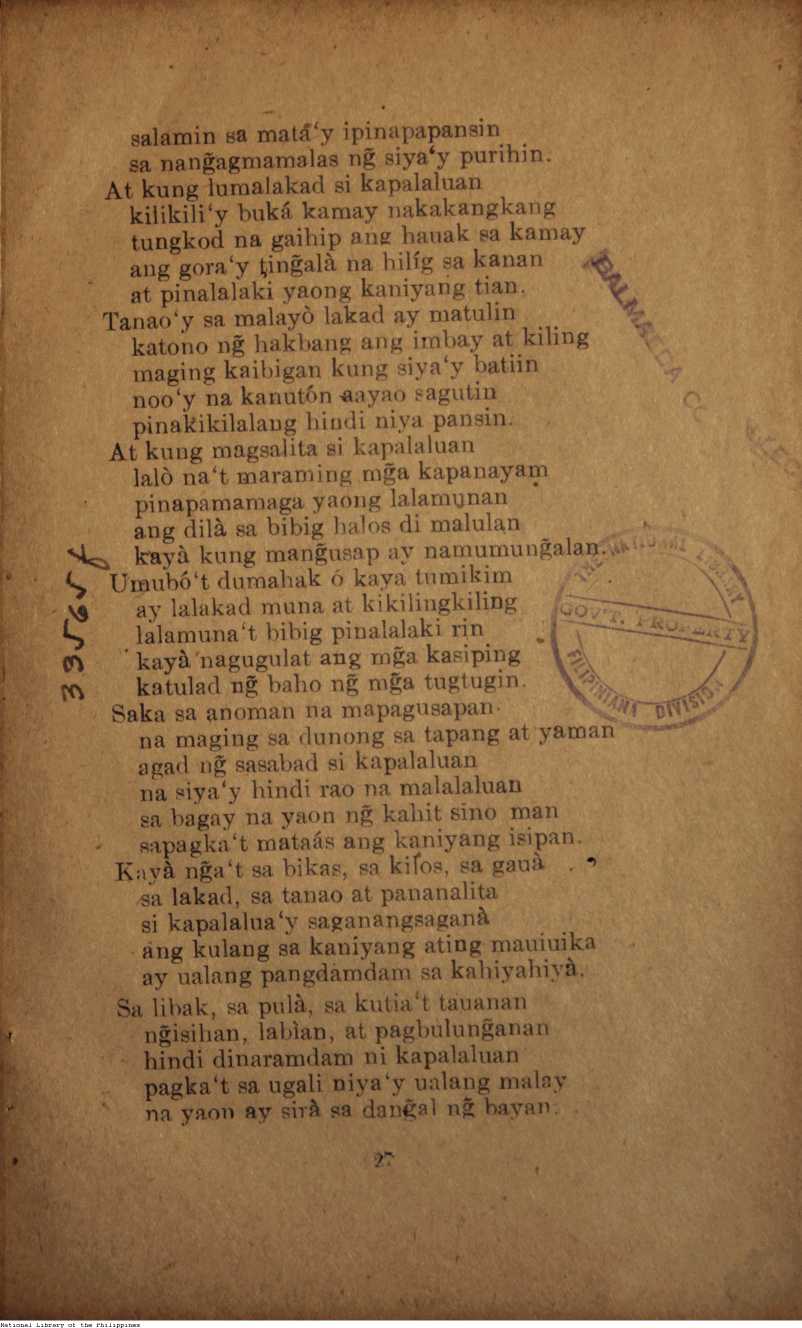 salamin sa matá‘y ipinapapansin
sa nang̃agmamalas ng̃ siya‘y purihin.
At kung lumalakad si kapalaluan
kilikili‘y buká kamay nakakangkang
tungkod na gaihip ang hauak sa kamay
ang gora‘y ting̃alà na hilíg sa kanan
at pinalalaki yaong kaniyang tian.
Tanao‘y sa malayò lakad ay matulin
katono ng̃ hakbang ang imbay at kiling
maging kaibigan kung siya‘y batiin
noo‘y na kanutón aayao sagutin
pinakikilalang hindi niya pansin.
At kung magsalita si kapalaluan
lalò na‘t maraming mg̃a kapanayam
pinapamamaga yaong lalamunan
ang dilà sa bibig halos di malulan
kayà kung mang̃usap ay namumung̃alan.
Umubó‘t dumahak ó kaya tumikim
ay lalakad muna at kikilingkiling
lalamuna‘t bibig pinalalaki rin
kayà nagugulat ang mg̃a kasiping
katulad ng̃ baho ng̃ mg̃a tugtugin.
Saka sa anoman na mapagusapan
na maging sa dunong sa tapang at yaman
agad ng̃ sasabad si kapalaluan
na siya‘y hindi rao na malalaluan
sa bagay na yaon ng̃ kahit sino man
sapagka‘t mataás ang kaniyang isipan.
Kayà ng̃a‘t sa bikas, sa kilos, sa gauà
sa lakad, sa tanao at pananalita
si kapalalua‘y saganangsaganà
ang kulang sa kaniyang ating mauiuika
ay ualang pangdamdam sa kahiyahiyà.
Sa libak, sa pulà, sa kutia‘t tauanan
ng̃isihan, labìan, at pagbulung̃anan
hindi dinaramdam ni kapalaluan
pagka‘t sa ugali niya‘y ualang malay
na yaon ay sirà sa dang̃al ng̃ bayan.
GOV'T. PROPERTY
DIVISION
27
National Library of the Philippines